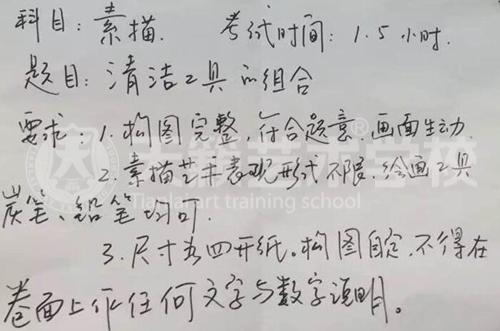 科目:素描. 考试时间:1.5小时.
题目:清洁工具的组合
要求:1.构图完整,符合题意,画面生动.
2.素描艺术表现形式不限,绘画工具
炭笔、铅笔均可.
3.尺寸为四开纸。构图自定,不得在
卷面上作任何文字与数字说明。
Tianlai art training school